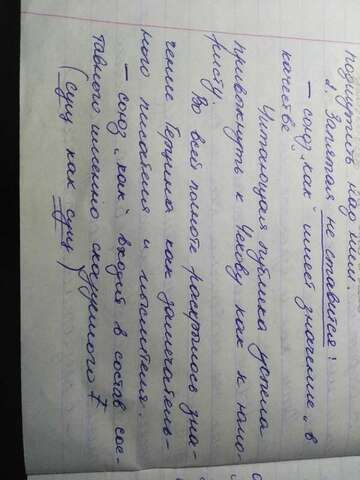 подшутить над ним.
2. Запятая не ставится!
– союз „как" имеет значение „в
качестве"
Читающая публика успела
привыкнуть к Чехову как к юмо-
ристу.
Во всей полноте раскрылось зна-
чение Герцена как замечатель-
ного писателя и мыслителя.
– союз „как" входит в состав сос-
тавного именно сказуемого
(сущ как сущ)